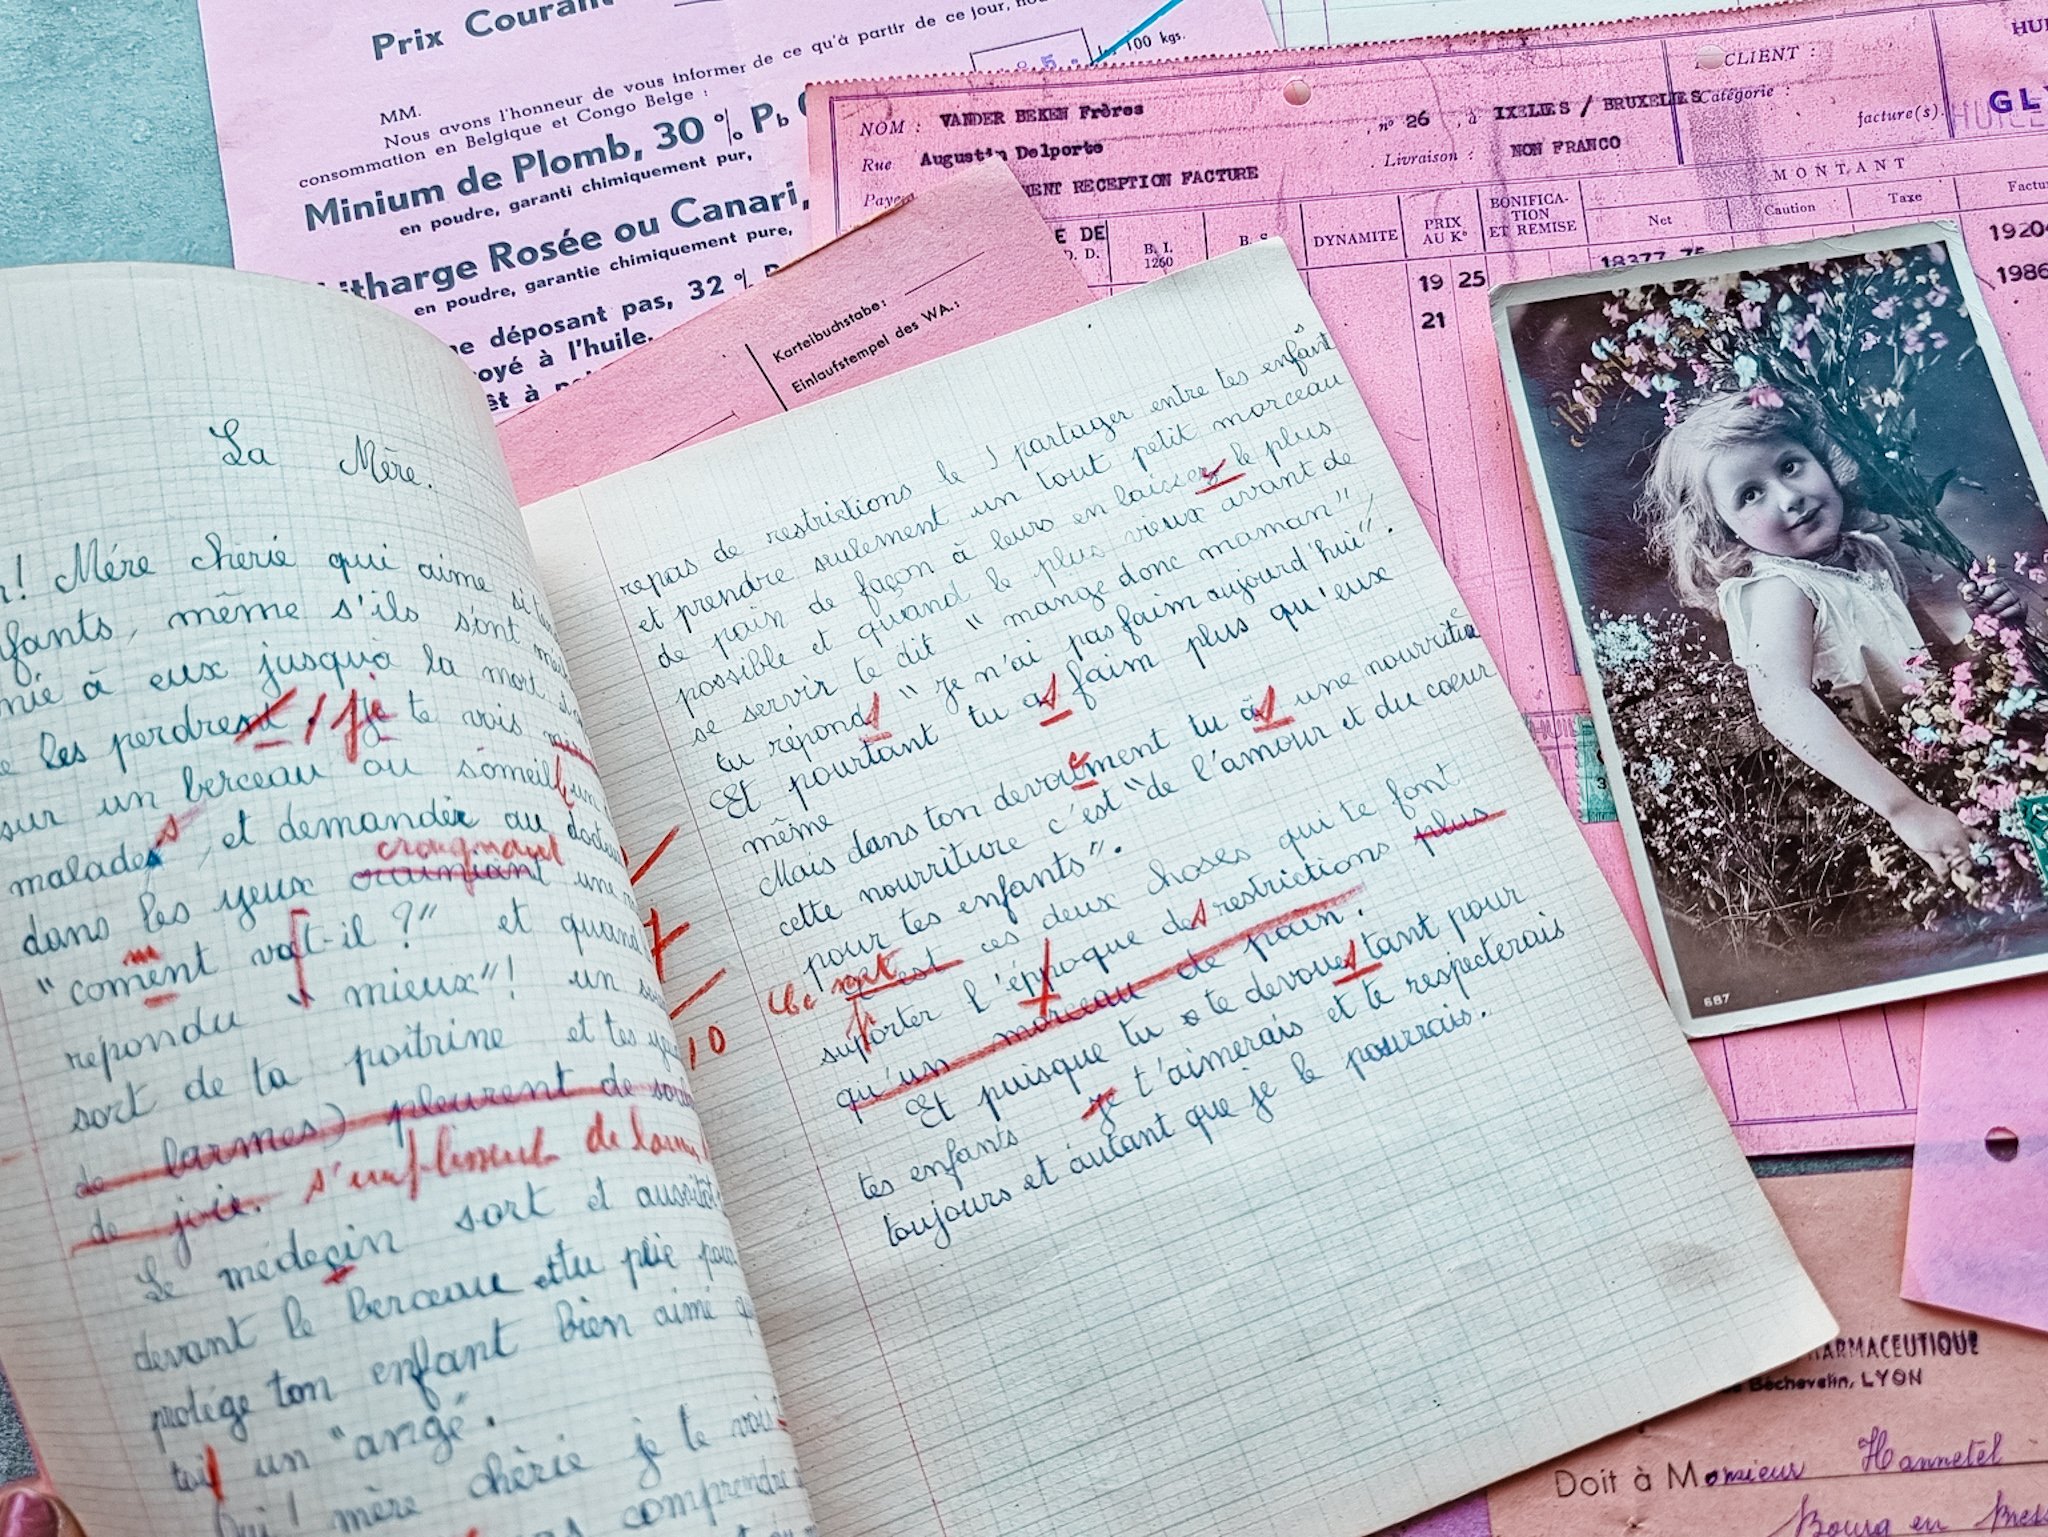 Prix Courant
MM.
Nous avons l'honneur de vous informer de ce qu'à partir de ce jour,
consommation en Belgique et Congo Belge :
Minium de Plomb, 30 % Pb
en poudre, garanti chimiquement pur,
Litharge Rosée ou Canari,
en poudre, garantie chimiquement pure,
ne déposant pas, 32 %
oyé à l'huile.
êt à
100 kgs.
NOM : VANDER BEKEN Frères , nº 26 , à IXELLES / BRUXELLES
Rue Augustin Delporte Livraison : NON FRANCO
ENT RECEPTION FACTURE
CLIENT :
Catégorie :
facture(s)
HUI
GLY
HUILE
MONTANT
E DE
D. D.
B. I.
1260
B. S.
DYNAMITE
PRIX
AU Kº
BONIFICA-
TION
ET REMISE
Net
Caution
Taxe
Factu
19 25
18377 75
1920
21
1986
Karteibuchstabe:
Einlaufstempel des WA.:
La Mère.
! Mére chèrie qui aime si
fants, même s'ils sont
nié à eux jusqua la mort
les perdrent. / je te vois
sur un berceau ou someil un
malades, et demander au docteu
craignant
dans les yeux craintant une
"coment vat-il ?" et quand
repondu "mieux"! un
sort de ta poitrine et tes
de larmes) pleurent de
de joie. s'emplissent de larm
Le médecin sort et aussitôt
devant le berceau et tu prie pour
protége ton enfant bien aimé
tait un "angé".
Oui! mère chèrie je te vois
comprendre
repas de restrictions le partager entre tes enfants
et prendre seulement un tout petit morceau
de pain de façon à leurs en laisser le plus
possible et quand le plus vieux avant de
se servir te dit "mange donc maman",
tu réponds "Je n'ai pas faim aujourd'hui".
Et pourtant tu as faim plus qu'eux
même
Mais dans ton devouement tu as une nourriture
cette nourriture c'est "de l'amour et du coeur
pour tes enfants".
Ce sont
c'est ces deux choses qui te font
suporter l'éppoque des restrictions plus
qu'un morceau de pain.
Et puisque tu te devoues tant pour
tes enfants je t'aimerais et te respecterais
toujours et autant que je le pourrais.
7
10
687
ARMACEUTIQUE
Béchevelin, LYON
Doit à Monsieur Hannetel
Bourg en Bress